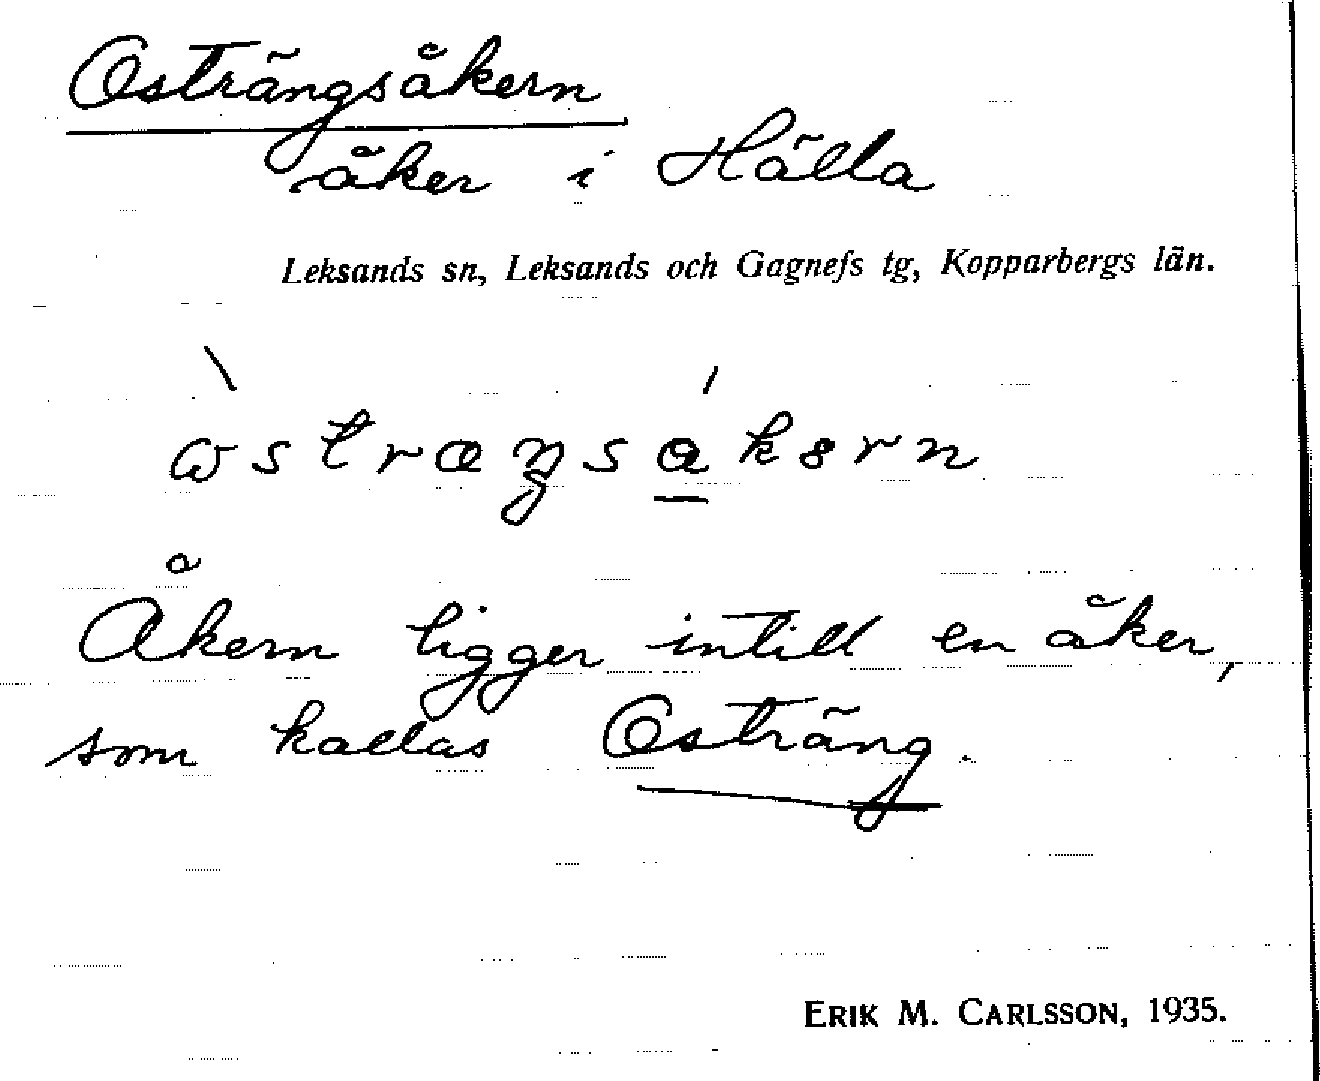 Osträngsåkern
åker i Hälla
Leksands sn, Leksands och Gagnefs tg, Kopparbergs län.
Åkern ligger intill en åker,
som kallas Osträng.
ERIK M. CARLSSON, 1935.